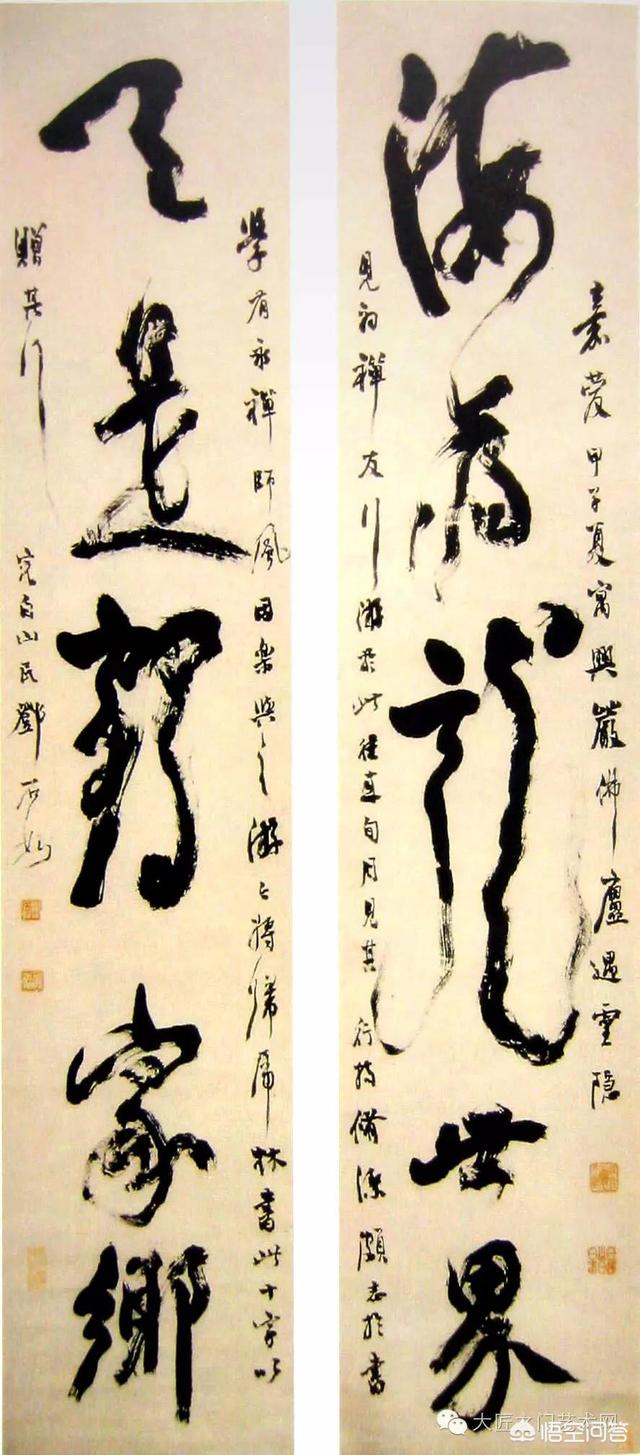 嘉慶甲子夏寓興嚴佛廬遇靈隱
海為龍世界
見初禪友行游於此旬月見其行持脩潔頗志於書
學有永禪師風因樂與之游之將歸虎林書此十字以
天是鶴家鄉
贈其行
完白山民鄧石如
大匠之门艺术网
悟空问答